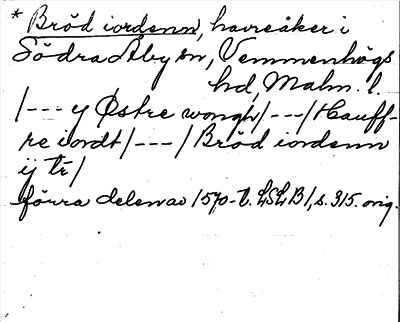 * Bröd iordenn, havreåker i
Södra Åby sn, Vemmenhögs
hd, Malm. l.
/--- y Østre wongh/---/Hauff-
re iordt/---/Bröd iordenn
ij tr/
förra delen av 1570-t. LSLB 1, s. 315. orig.